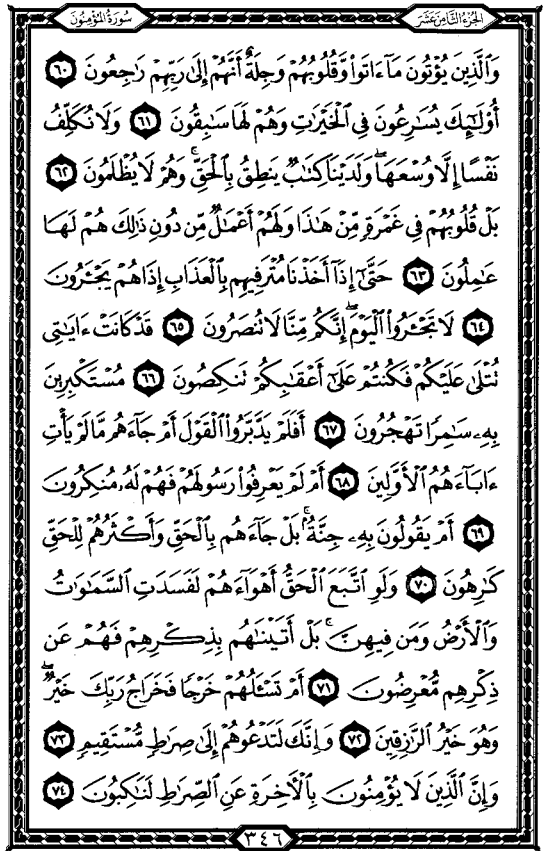 الجزء الثامن عشر
سورة المؤمنون
وَالَّذِينَ يُؤْتُونَ مَا ءَاتَوا وَّقُلُوبُهُمْ وَجِلَةٌ أَنَّهُمْ إِلَىٰ رَبِّهِمْ رَٰجِعُونَ ٦٠
أُو۟لَٰٓئِكَ يُسَٰرِعُونَ فِى ٱلْخَيْرَٰتِ وَهُمْ لَهَا سَٰبِقُونَ ٦١ وَلَا نُكَلِّفُ
نَفْسًا إِلَّا وُسْعَهَا ۖ وَلَدَيْنَا كِتَٰبٌ يَنطِقُ بِٱلْحَقِّ ۚ وَهُمْ لَا يُظْلَمُونَ ٦٢
بَلْ قُلُوبُهُمْ فِى غَمْرَةٍ مِّنْ هَٰذَا وَلَهُمْ أَعْمَٰلٌ مِّن دُونِ ذَٰلِكَ هُمْ لَهَا
عَٰمِلُونَ ٦٣ حَتَّىٰٓ إِذَآ أَخَذْنَا مُتْرَفِيهِم بِٱلْعَذَابِ إِذَا هُمْ يَجْـَٔرُونَ
٦٤ لَا تَجْـَٔرُوا۟ ٱلْيَوْمَ ۖ إِنَّكُم مِّنَّا لَا تُنصَرُونَ ٦٥ قَدْ كَانَتْ ءَايَٰتِى
تُتْلَىٰ عَلَيْكُمْ فَكُنتُمْ عَلَىٰٓ أَعْقَٰبِكُمْ تَنكِصُونَ ٦٦ مُسْتَكْبِرِينَ
بِهِۦ سَٰمِرًا تَهْجُرُونَ ٦٧ أَفَلَمْ يَدَّبَّرُوا۟ ٱلْقَوْلَ أَمْ جَآءَهُم مَّا لَمْ يَأْتِ
ءَابَآءَهُمُ ٱلْأَوَّلِينَ ٦٨ أَمْ لَمْ يَعْرِفُوا۟ رَسُولَهُمْ فَهُمْ لَهُۥ مُنكِرُونَ
٦٩ أَمْ يَقُولُونَ بِهِۦ جِنَّةٌۢ ۚ بَلْ جَآءَهُم بِٱلْحَقِّ وَأَكْثَرُهُمْ لِلْحَقِّ
كَٰرِهُونَ ٧٠ وَلَوِ ٱتَّبَعَ ٱلْحَقُّ أَهْوَآءَهُمْ لَفَسَدَتِ ٱلسَّمَٰوَٰتُ
وَٱلْأَرْضُ وَمَن فِيهِنَّ ۚ بَلْ أَتَيْنَٰهُم بِذِكْرِهِمْ فَهُمْ عَن
ذِكْرِهِم مُّعْرِضُونَ ٧١ أَمْ تَسْـَٔلُهُمْ خَرْجًا فَخَرَاجُ رَبِّكَ خَيْرٌ ۖ
وَهُوَ خَيْرُ ٱلرَّٰزِقِينَ ٧٢ وَإِنَّكَ لَتَدْعُوهُمْ إِلَىٰ صِرَٰطٍ مُّسْتَقِيمٍ ٧٣
وَإِنَّ ٱلَّذِينَ لَا يُؤْمِنُونَ بِٱلْأَخِرَةِ عَنِ ٱلصِّرَٰطِ لَنَٰكِبُونَ ٧٤
٣٤٦